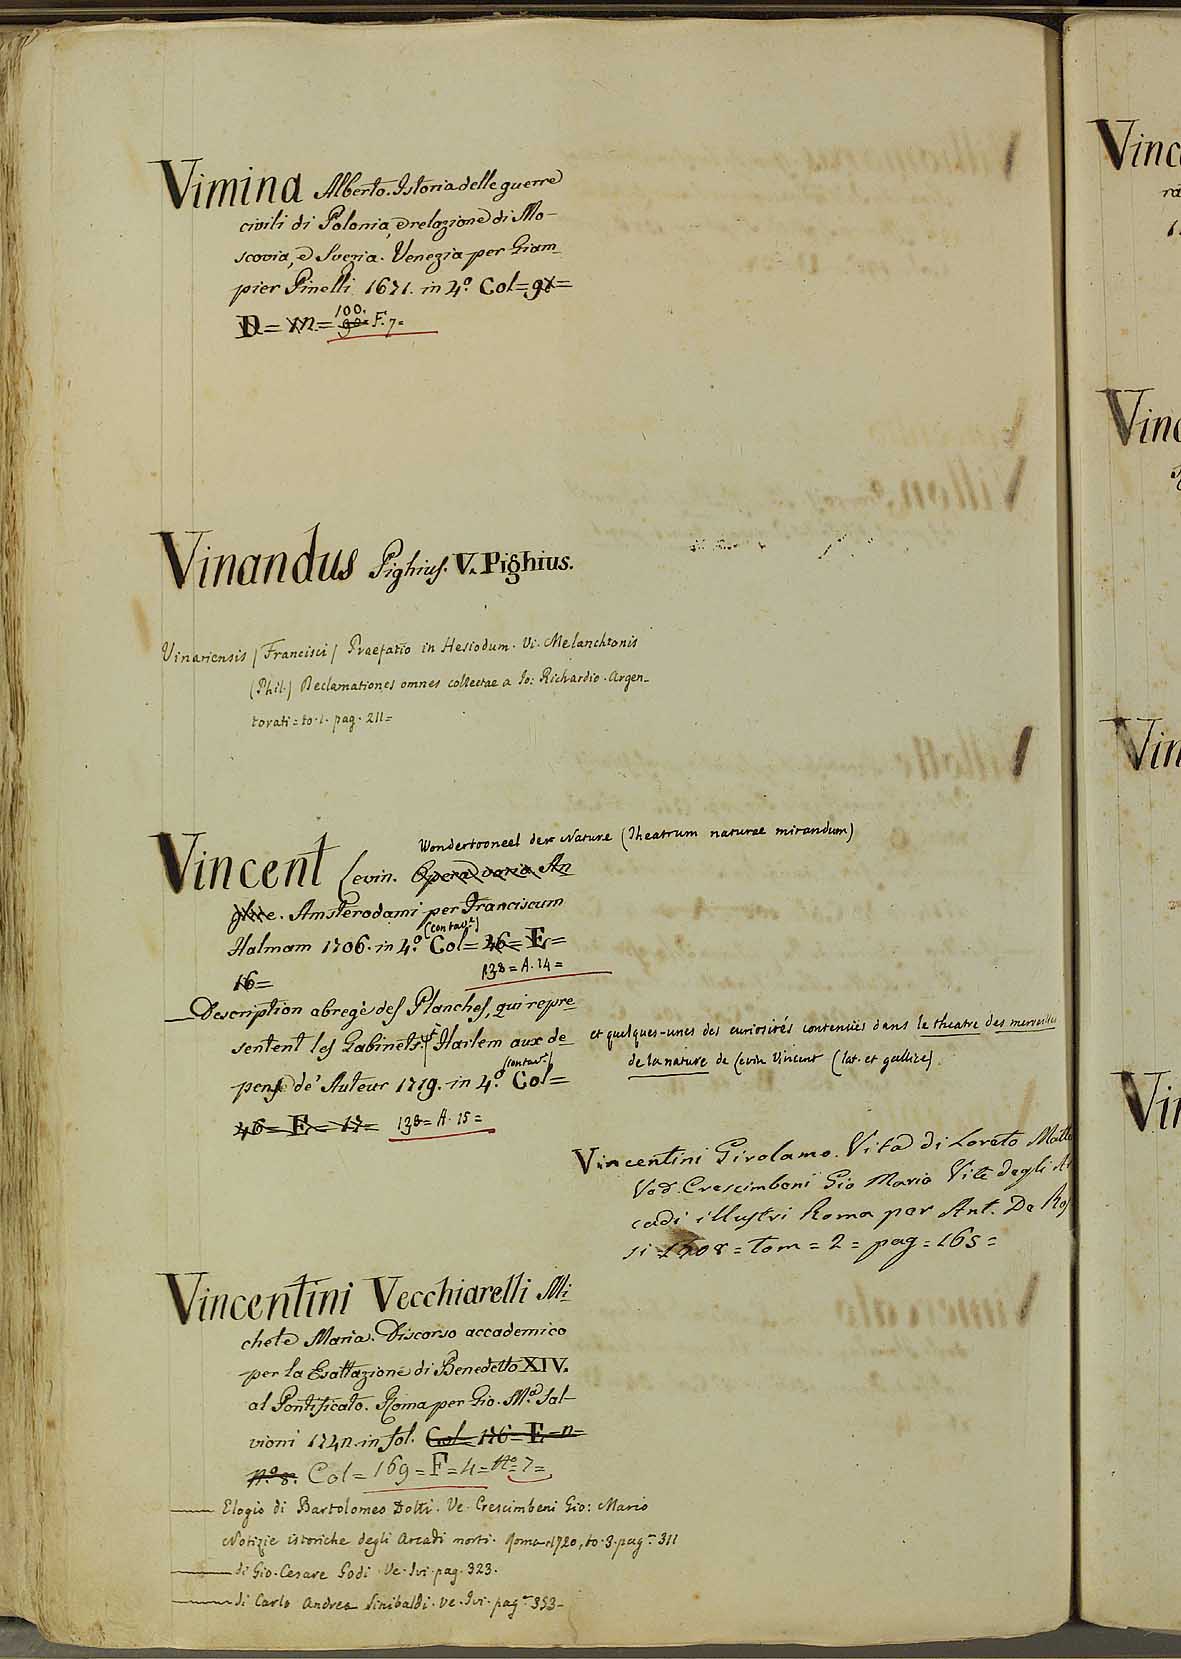 Vimina Alberto. Istoria delle guerre
civili di Polonia, e relazione di Mo-
scovia, e Svezia. Venezia per Giam-
pier Pinelli 1671. in 4.º Col=
D= M.= 100. F. 7=
Vinandus Pighius. V. Pighius.
Vinariensis / Francisci / Praefatio in Hesiodum. Vi. Melanchtonis
(Phil.) Declamationes omnes collectae a Io: Richardio. Argen-
torati= to. 1. pag. 211=
Wondertooneel der Nature (Theatrum naturae mirandum)
Vincent Levin. Opera varia An
glice. Amsterodami per Franciscum
Halmam 1706. in 4.º (contav.ª) Col= 46= E=
16= 138= A. 14=
Description abregè des Planches, qui repre
sentent les Gabinets Harlem aux de
et quelques-unes des curiosités contenües dans le theatre des merveilles
de la nature de Levin Vincent (lat. et gallice).
pens de' Auteur 1719. in 4.º (contav.ª) Col=
46= E= 17= 138= A. 15=
Vincentini Girolamo. Vita di Loreto Matt
Ved. Crescimbeni Gio Mario Vite degli Ar
cadi illustri Roma per Ant. De Ros
si 1708= tom= 2= pag= 165=
Vincentini Vecchiarelli Mi
chele Maria. Discorso accademico
per la Esaltazione di Benedetto XIV.
al Pontificato. Roma per Gio. M.ª Sal-
vioni in fol. Col= 176= E= n=
n.º 8. Col= 169= F= 4= N.º 7=
Elogio di Bartolomeo Dotti. Ve. Crescimbeni Gio: Mario
Notizie istoriche degli Arcadi morti. Roma 1720, to. 3. pag. 311
di Gio. Cesare Godi Ve. Ivi. pag. 323.
di Carlo Andrea Sinibaldi. ve. Ivi. pag. 353-
Vinc
Vinc
Vin
Vin